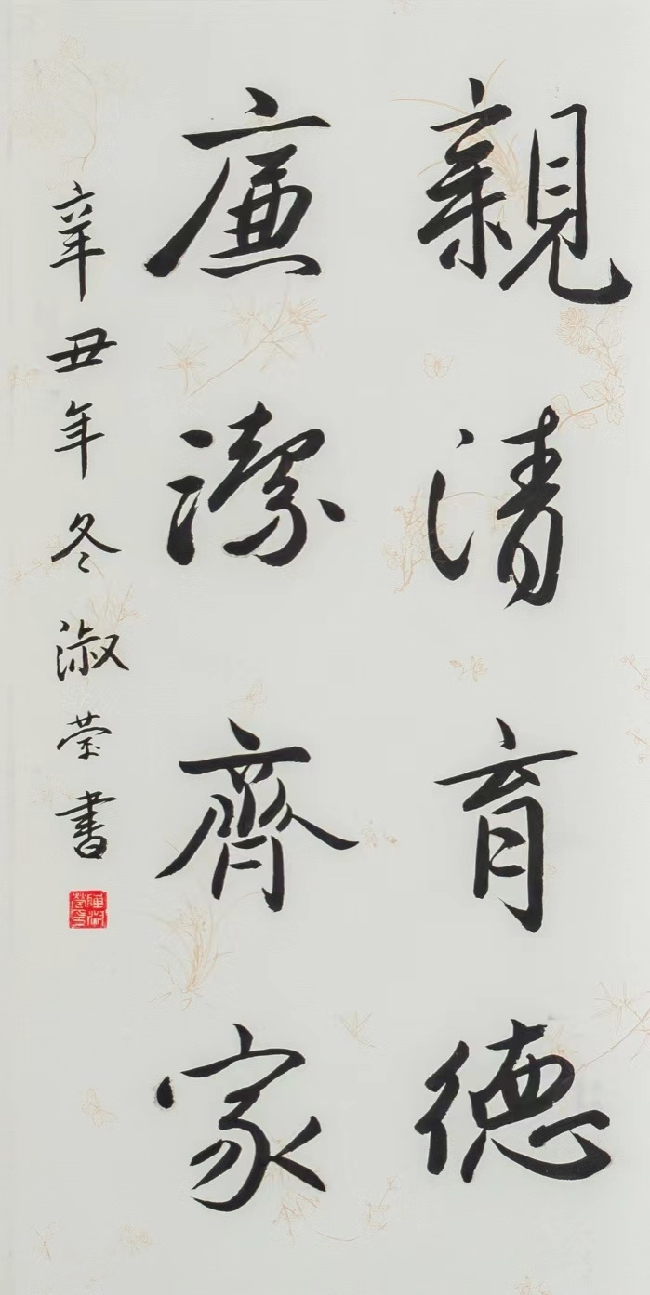 親清育德
廉潔齊家
辛丑年冬淑莹書